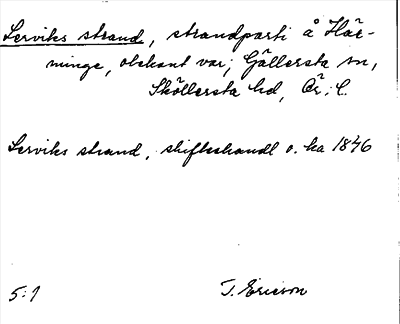 Serviks strand, strandparti å Här-
minge, obekant var; Gällersta sn,
Sköllersta hd, Ör. l.
Serviks strand, skifteshandl o. ka 1846
5:1 T. Ericson